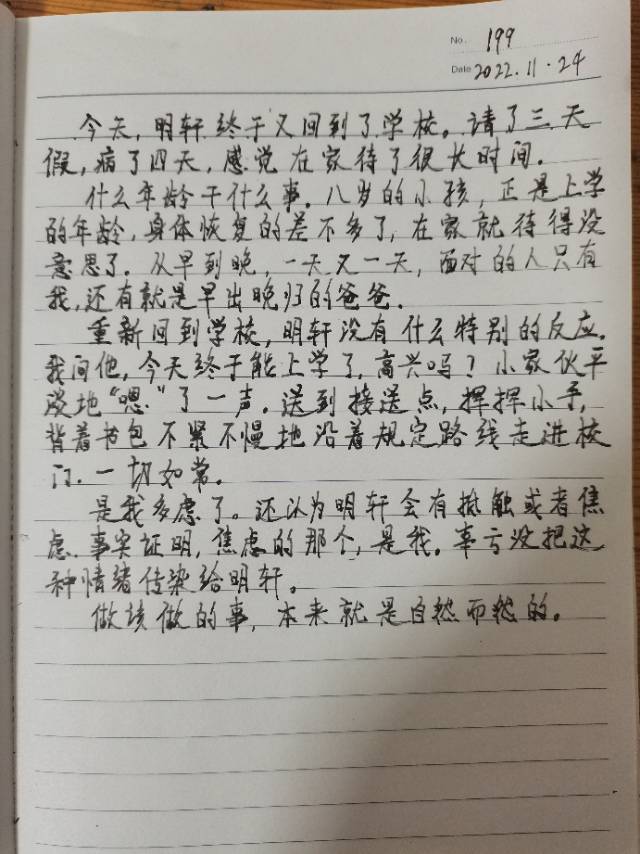 No. 199
Date 2022.11.24
今天,明轩终于又回到了学校。请了三天
假,病了四天,感觉在家待了很长时间.
什么年龄干什么事。八岁的小孩,正是上学
的年龄,身体恢复的差不多了,在家就待得没
意思了.从早到晚,一天又一天,面对的人只有
我,还有就是早出晚归的爸爸.
重新回到学校,明轩没有什么特别的反应.
我问他,今天终于能上学了,高兴吗?小家伙平
淡地“嗯”了一声.送到接送点,挥挥小手,
背着书包不紧不慢地沿着规定路线走进校
门.一切如常.
是我多虑了。还以为明轩会有抵触或者焦
虑.事实证明,焦虑的那个,是我.幸亏没把这
种情绪传染给明轩。
做该做的事,本来就是自然而然的。